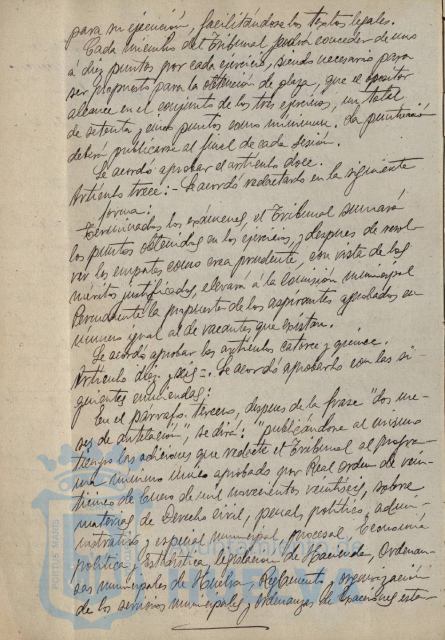 para su ejecución, facilitándose los textos legales.
Cada miembro del Tribunal podrá conceder de uno
á diez puntos por cada ejercicio, siendo necesario para
ser propuesto para la obtención de plaza, que el opositor
alcance en el conjunto de los tres ejercicios, un total
de setenta y cinco puntos como mínimum. La puntuación
deberá publicarse al final de cada sesión.
Se acordó aprobar el artículo doce.
Artículo trece:- Se acordó redactarlo en la siguiente
forma:
Terminados los exámenes, el Tribunal sumará
los puntos obtenidos en los ejercicios, y despues de resol-
ver los empates como crea prudente, con vista de los
méritos justificados, elevará á la Comisión municipal
Permanente la propuesta de los aspirantes aprobados en
número igual al de vacantes que existan.
Se acordó aprobar los artículos catorce y quince.
Artículo diez y seis=. Se acordó aprobarlo con las si-
guientes enmiendas:
En el párrafo tercero, despues de la frase "dos me-
ses de antelación", se dirá: "publicándose al mismo
tiempo las adiciones que redacte el Tribunal al progra-
ma mínimo único aprobado por Real Orden de vein-
ticinco de Enero de mil novecientos veintiseis, sobre
materias de Derecho civil, penal, político, admi-
nistrativo y especial municipal, procesal, Economía
política y Estadística, legislación de Hacienda, Ordenan-
zas municipales de Huelva, Reglamento y organización
de los servicios municipales y Ordenanzas de Exacciones esta-